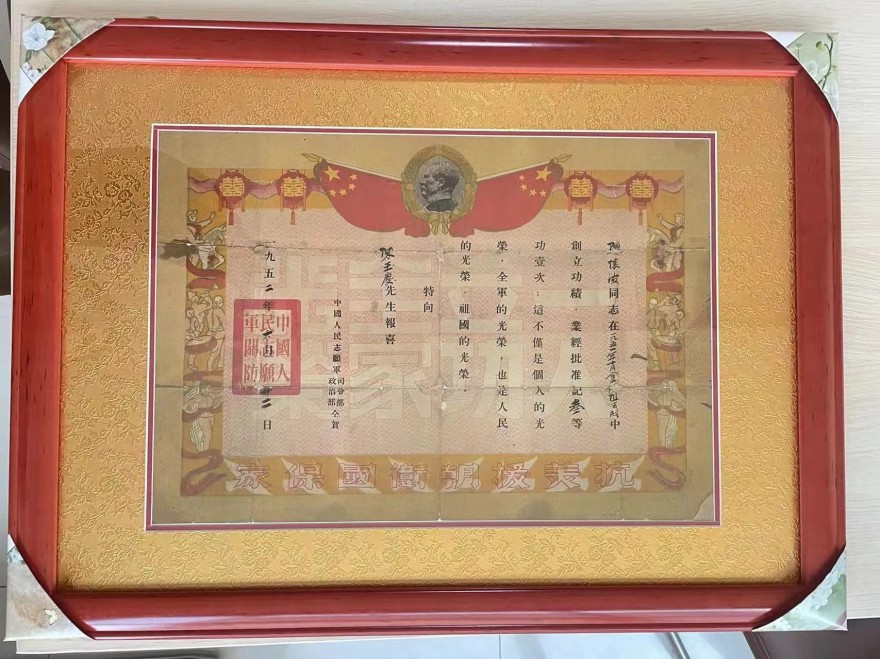 囍 囍 囍 囍
同志在一九五一年十月 中
創立功績，業經批准記叁等
功壹次；這不僅是個人的光
榮，全軍的光榮，也是人民
的光榮，祖國的光榮。
特向
陳玉慶先生報喜
中國人民志願軍司令部
政治部仝賀
一九五二年 月 二日
中國人
民志願
軍關防
抗美援朝衛國保家